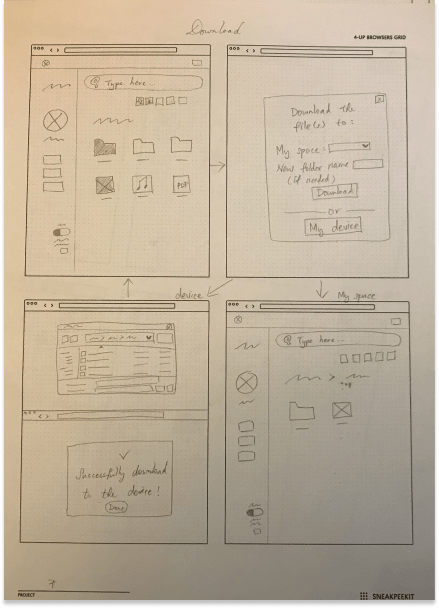 Download
4-UP BROWSERS GRID
Type here...
PDF
Download the
file(s) to:
My space:
New folder name
(if needed)
Download
or
My device
device
My space
Successfully download
to the device!
Done
Type here...
PROJECT
SNEAKPEEKIT